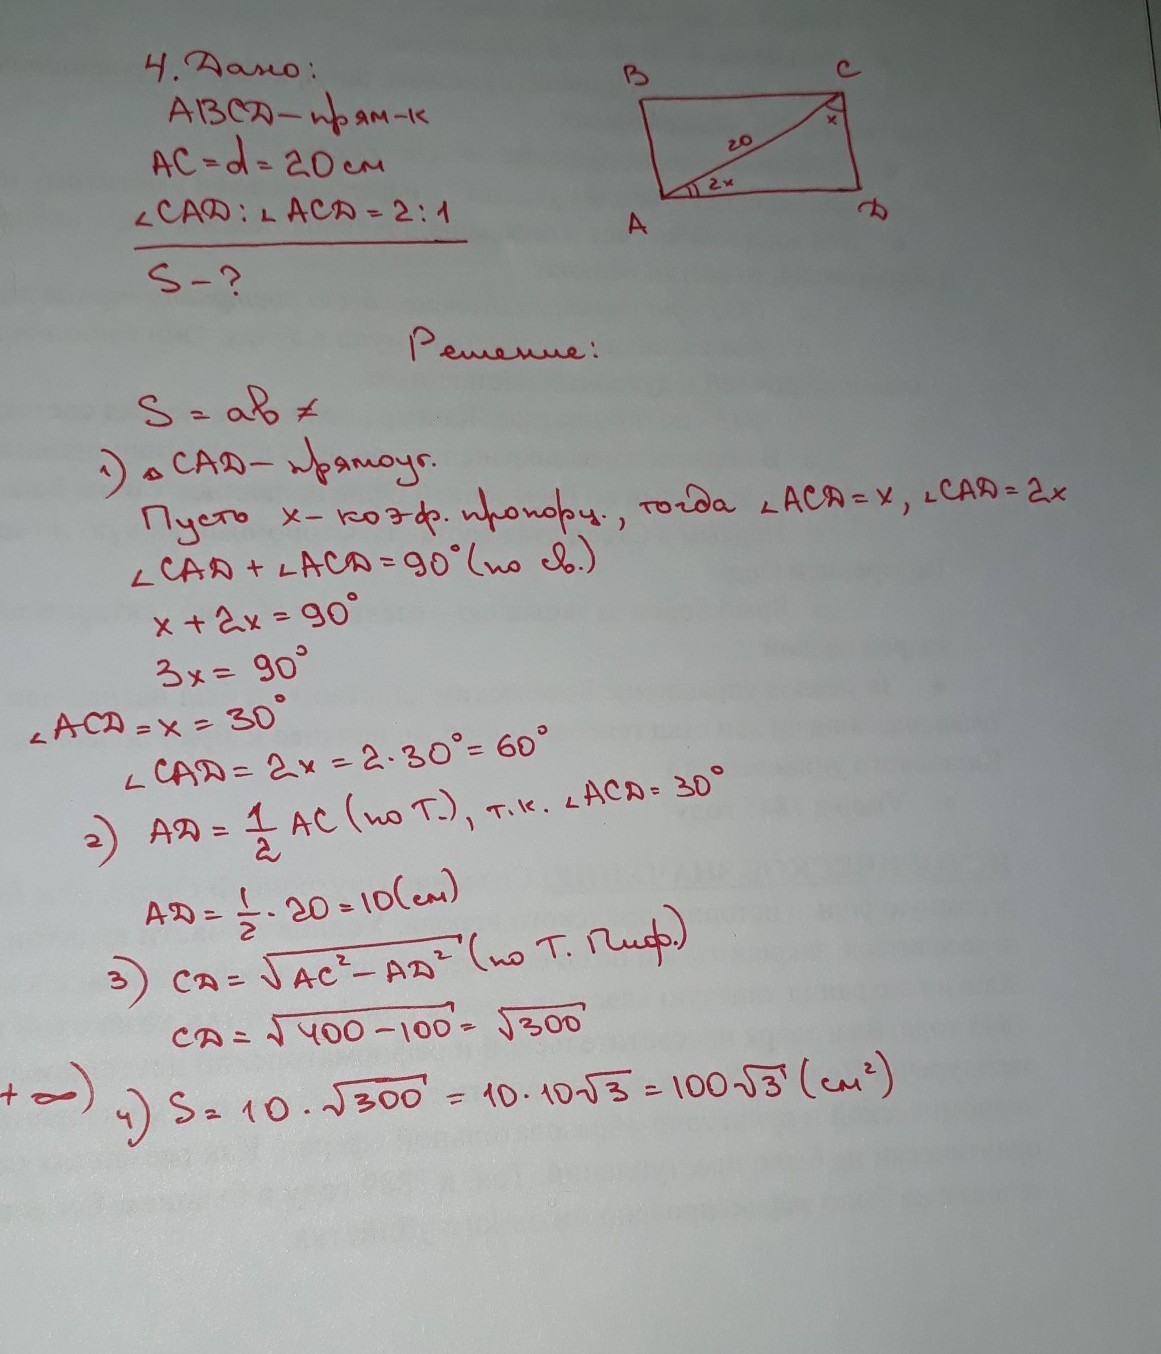 4. Дано:
ABCD – прям-к
AC = d = 20 см
∠CAD : ∠ACD = 2 : 1
S – ?
B
C
x
20
2x
A
D
Решение:
S = ab ≠
1) △CAD – прямоуг.
Пусть x – коэф. пропорц., тогда ∠ACD = x, ∠CAD = 2x
∠CAD + ∠ACD = 90° (по св.)
x + 2x = 90°
3x = 90°
∠ACD = x = 30°
∠CAD = 2x = 2 · 30° = 60°
2) AD = 1/2 AC (по Т.), т.к. ∠ACD = 30°
AD = 1/2 · 20 = 10 (см)
3) CD = √(AC² – AD²) (по Т. Пиф.)
CD = √(400 – 100) = √300
+ ∞)
4) S = 10 · √300 = 10 · 10√3 = 100√3 (см²)